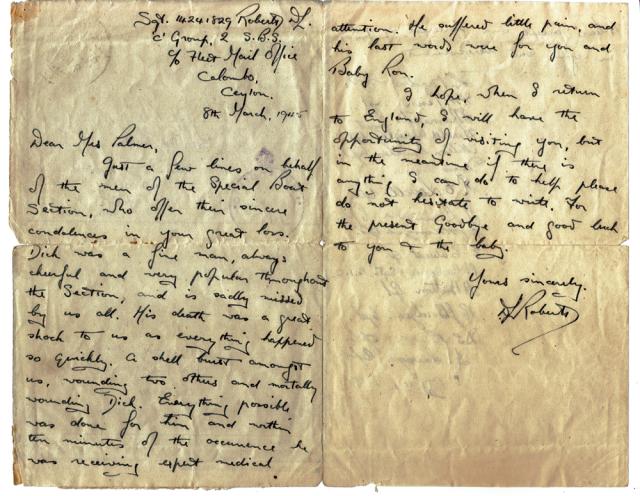 Sgt. 14241829 Roberts D.L.
'C' Group, 2 S.B.S.
c/o Fleet Mail Office
Colombo,
Ceylon.
8th March, 1945
Dear Mrs Palmer,
Just a few lines on behalf
of the men of the Special Boat
Section, who offer their sincere
condolences in your great loss.
Dick was a fine man, always
cheerful and very popular throughout
the Section, and is sadly missed
by us all. His death was a great
shock to us as everything happened
so quickly. A shell burst amongst
us, wounding two others and mortally
wounding Dick. Everything possible
was done for him and within
ten minutes of the occurrence he
was receiving expert medical
attention. He suffered little pain, and
his last words were for you and
Baby Ron.
I hope, when I return
to England, I will have the
opportunity of visiting you, but
in the meantime if there is
anything I can do to help please
do not hesitate to write. For
the present Goodbye and good luck
to you & the baby.
Yours sincerely.
Roberts